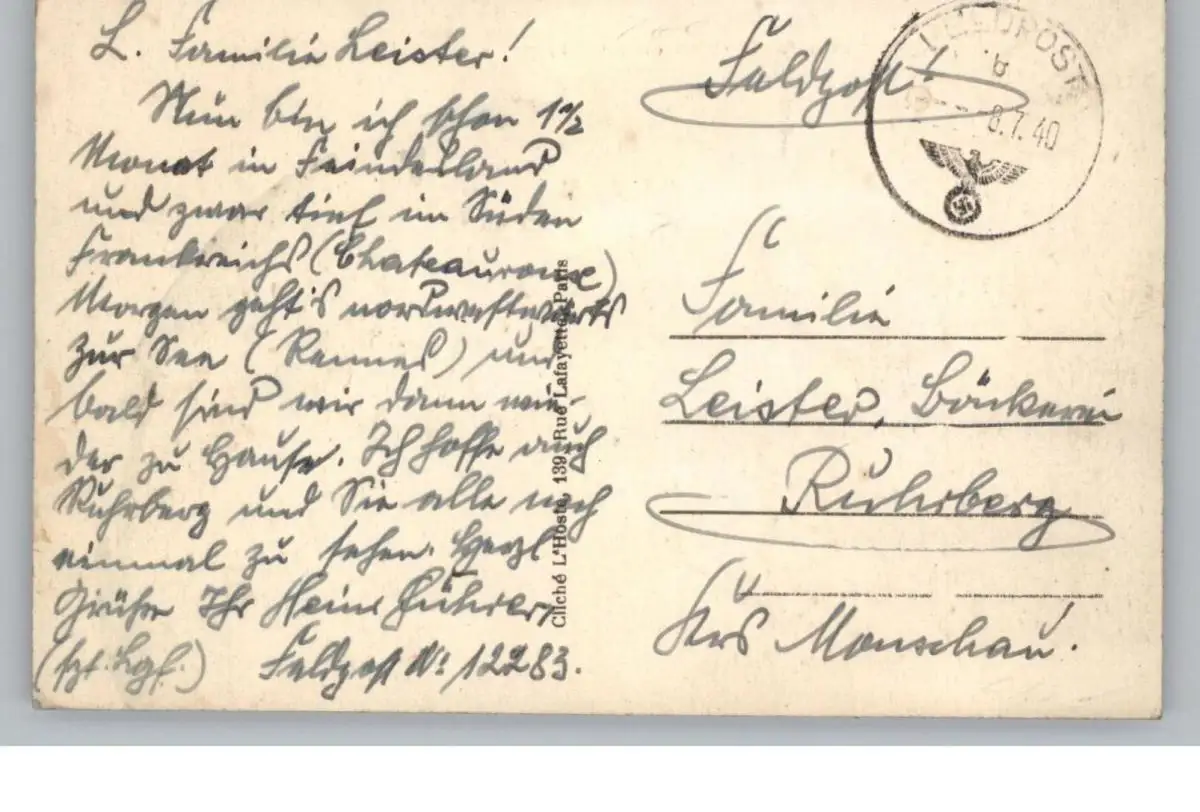 L. Familie Leister!
Nun bin ich schon 1 1/2
Monat in Feindesland
und zwar tief im Süden
Frankreichs (Chateauroux)
Morgen geht's nordwestwärts
zur See (Rennes) und
bald sind wir dann wie-
der zu Hause. Ich hoffe auch
Ruhrberg und Sie alle noch
einmal zu sehen. Herzl.
Grüße Ihr Heinz
Feldpost No 12283.
Cliché L'Hoste, 139, Rue Lafayette, Paris
Feldpost!
FELDPOST
b
8.7.40
Familie
Leister, Bäckerei
Ruhrberg
Krs Monschau.